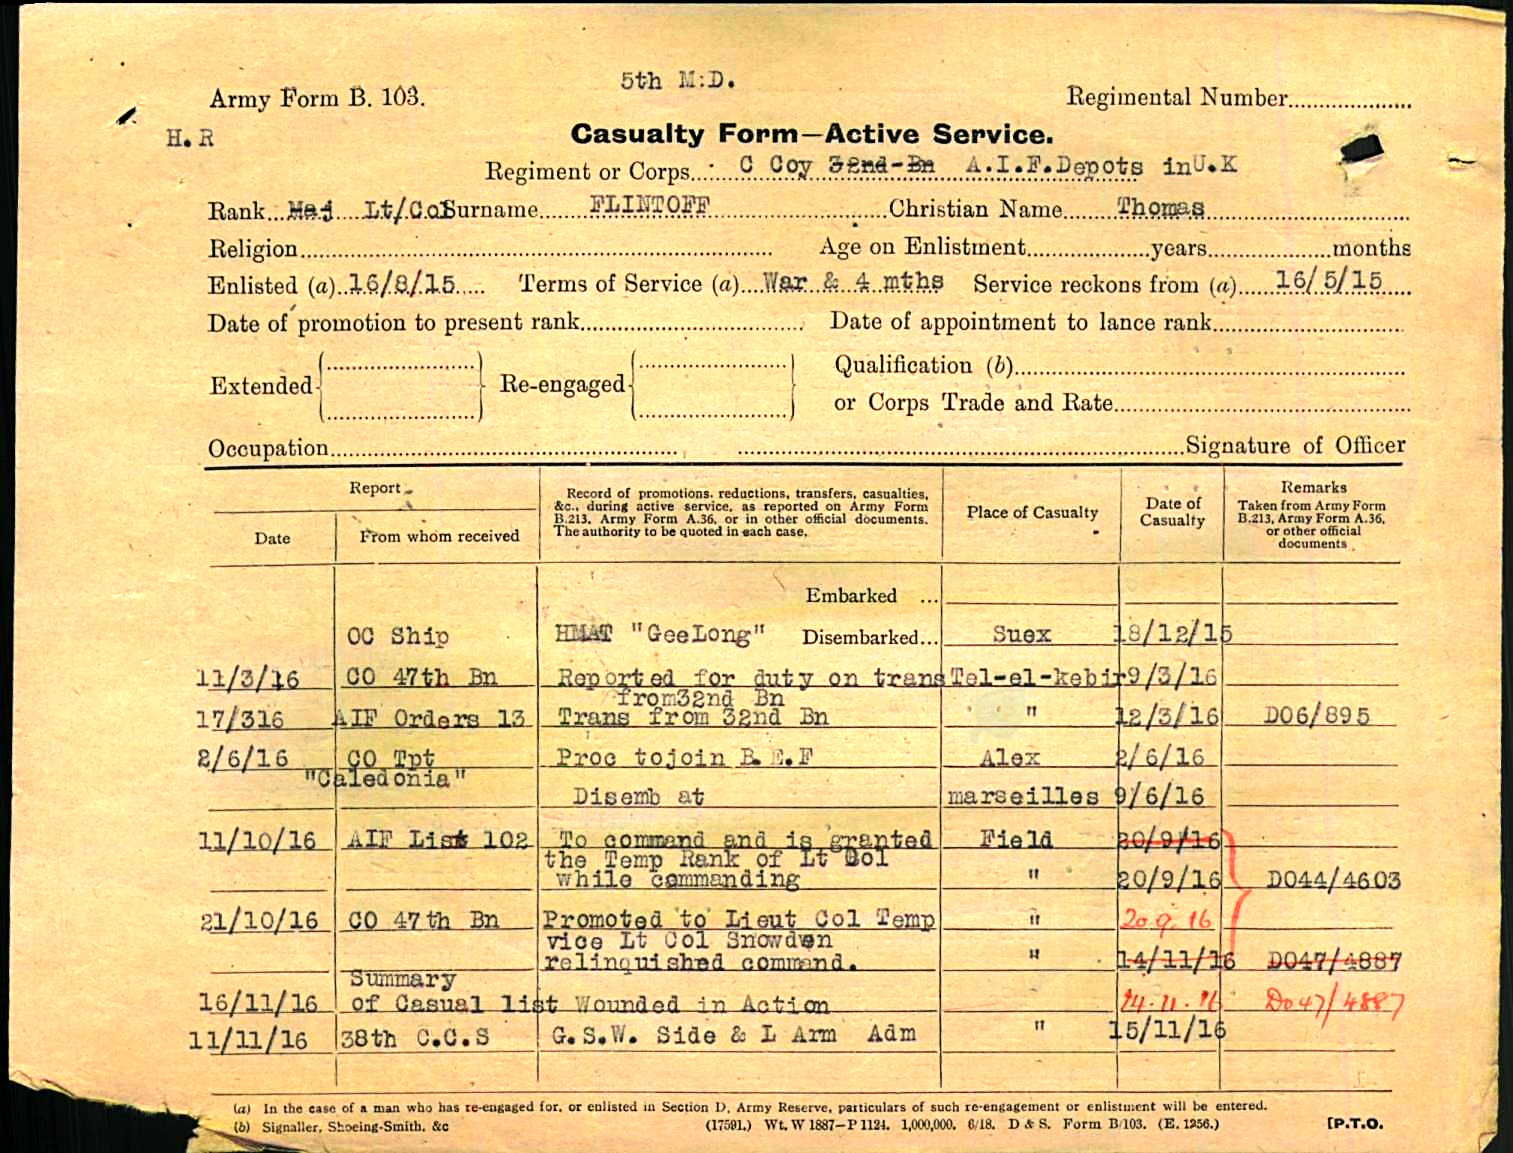 5th M:D.
Army Form B. 103.
Regimental Number....................
H.R
Casualty Form—Active Service.
Regiment or Corps... C Coy 32nd-Bn A.I.F.Depots inU.K
Rank...Maj...Lt/Col Surname.........FLINTOFF..............................Christian Name.........Thomas...................................
Religion............................................................ Age on Enlistment....................years....................months
Enlisted (a)..16/8/15..... Terms of Service (a)....War & 4 mths Service reckons from (a)......16/5/15.....
Date of promotion to present rank..................................... Date of appointment to lance rank...............................
Extended Re-engaged Qualification (b)..............................................................
or Corps Trade and Rate...............................................
Occupation............................................................ ............................................................Signature of Officer
Report
Date
From whom received
Record of promotions, reductions, transfers, casualties,
&c., during active service, as reported on Army Form
B.213, Army Form A.36, or in other official documents.
The authority to be quoted in each case.
Place of Casualty
Date of
Casualty
Remarks
Taken from Army Form
B.213, Army Form A.36,
or other official
documents
Embarked ...
OC Ship HMAT "GeeLong" Disembarked... Suex 18/12/15
11/3/16 CO 47th Bn Reported for duty on trans Tel-el-kebir 9/3/16
from32nd Bn
17/316 AIF Orders 13 Trans from 32nd Bn " 12/3/16 DO6/895
2/6/16 CO Tpt Proc tojoin B.E.F Alex 2/6/16
"Caledonia"
Disemb at marseilles 9/6/16
11/10/16 AIF List 102 To command and is granted Field 20/9/16
the Temp Rank of Lt Col
while commanding " 20/9/16 DO44/4603
21/10/16 CO 47th Bn Promoted to Lieut Col Temp " 20.9.16
vice Lt Col Snowden
relinquished command. " 14/11/16 DO47/4887
Summary
16/11/16 of Casual list Wounded in Action 14.11.16 Do47/4887
11/11/16 38th C.C.S G.S.W. Side & L Arm Adm " 15/11/16
(a) In the case of a man who has re-engaged for, or enlisted in Section D, Army Reserve, particulars of such re-engagement or enlistment will be entered.
(b) Signaller, Shoeing-Smith, &c (17591.) Wt. W 1887—P 1124. 1,000,000. 6/18. D & S. Form B/103. (E. 1256.) [P.T.O.